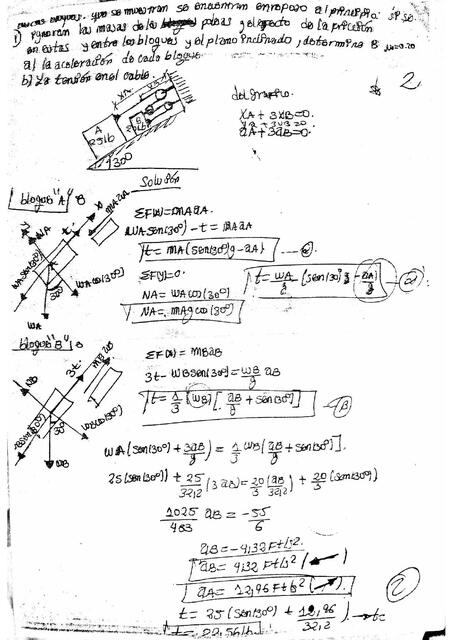 bloques que se muestran se encuentran en reposo al principio si se
1) ignoran las masas de las poleas y el efecto de la fricción
en estas y entre los bloques y el plano inclinado, determine
a) la aceleración de cada bloque
b) La tensión en el cable.
2
del grafico.
XA + 3XB=0.
VA + 3VB=0
aA + 3aB=0.
XA
A
25lb
B
30°
Solución
bloque "A"
ΣF(x)=mAaA.
WA sen(30°) - t = mAaA
t = mA(sen(30°)g - aA)
ΣF(y)=0.
NA = WA cos(30°)
NA = mAg cos(30°)
mA aA
WA sen(30°)
WA cos(30°)
30°
WA
bloque "B"
ΣF(x) = mBaB
3t - WB sen(30°) = WB/g aB
t = 1/3 (WB) [aB/g + sen(30°)]
3t
mB aB
WB cos(30°)
30°
WB
WA (sen(30°) + 3aB/g) = 1/3 WB(aB/g + sen(30°)].
25(sen(30°)) + 25/32,2 (3aB) = 20/3 (aB/32,2) + 20/3 (sen(30°)
1025/483 aB = -55/6
aB = -4,32 Ft/s².
aB = 4,32 Ft/s²
aA = 12,96 Ft/s²
t = 25(sen(30°) + 12,96/32,2)
t = 22,56 lb.
2